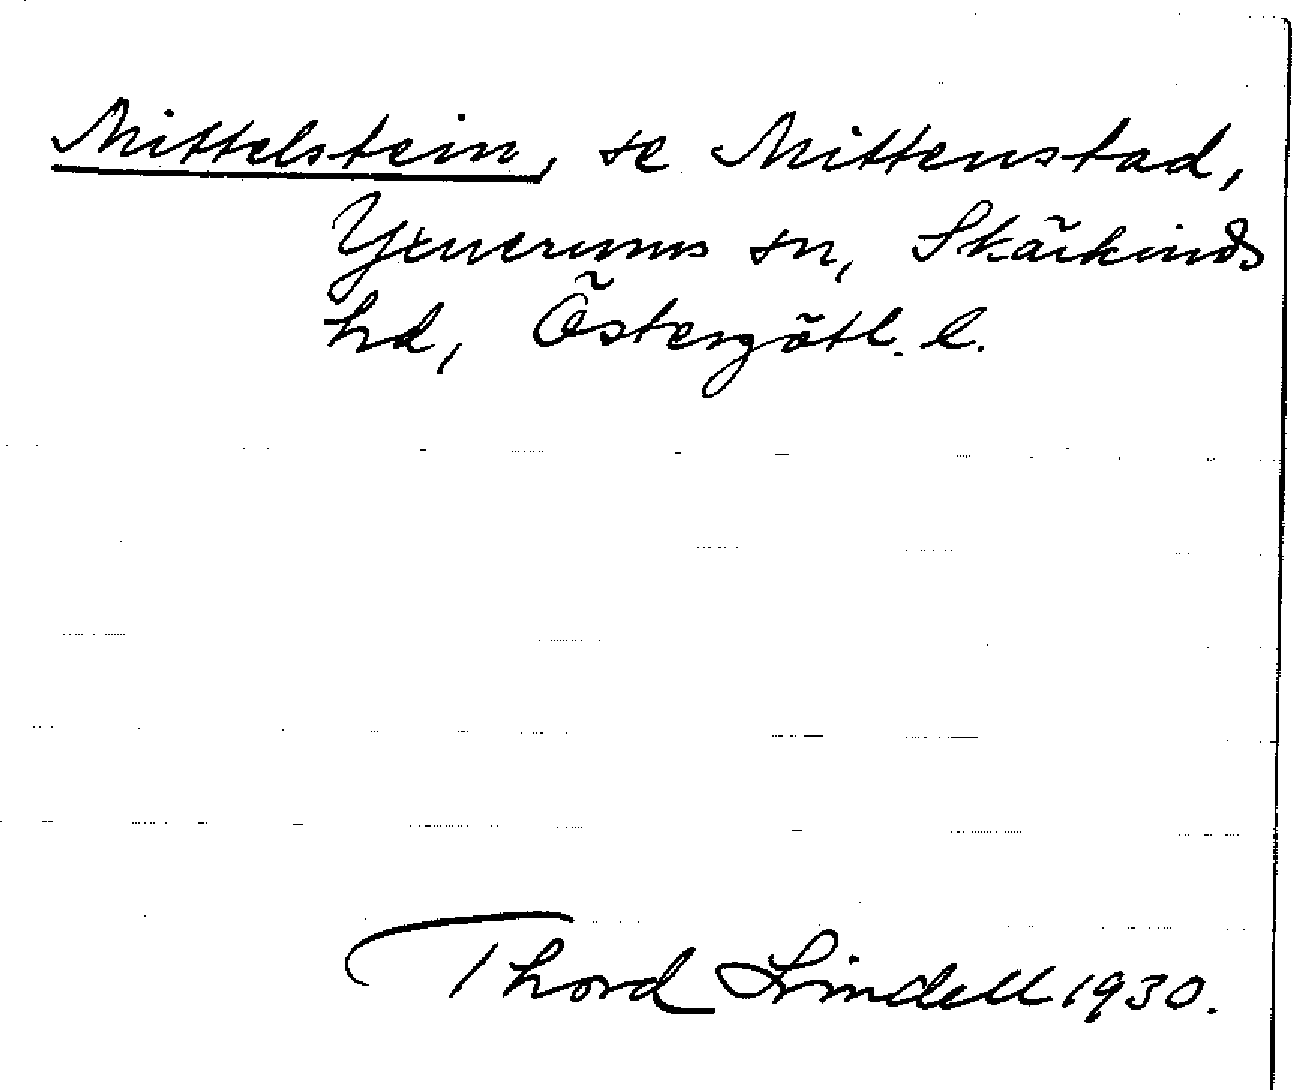 Mittelstein, se Mittenstad,
Yxnerums sn, Skärkinds
hd, Östergötl. l.
Thord Lindell 1930.